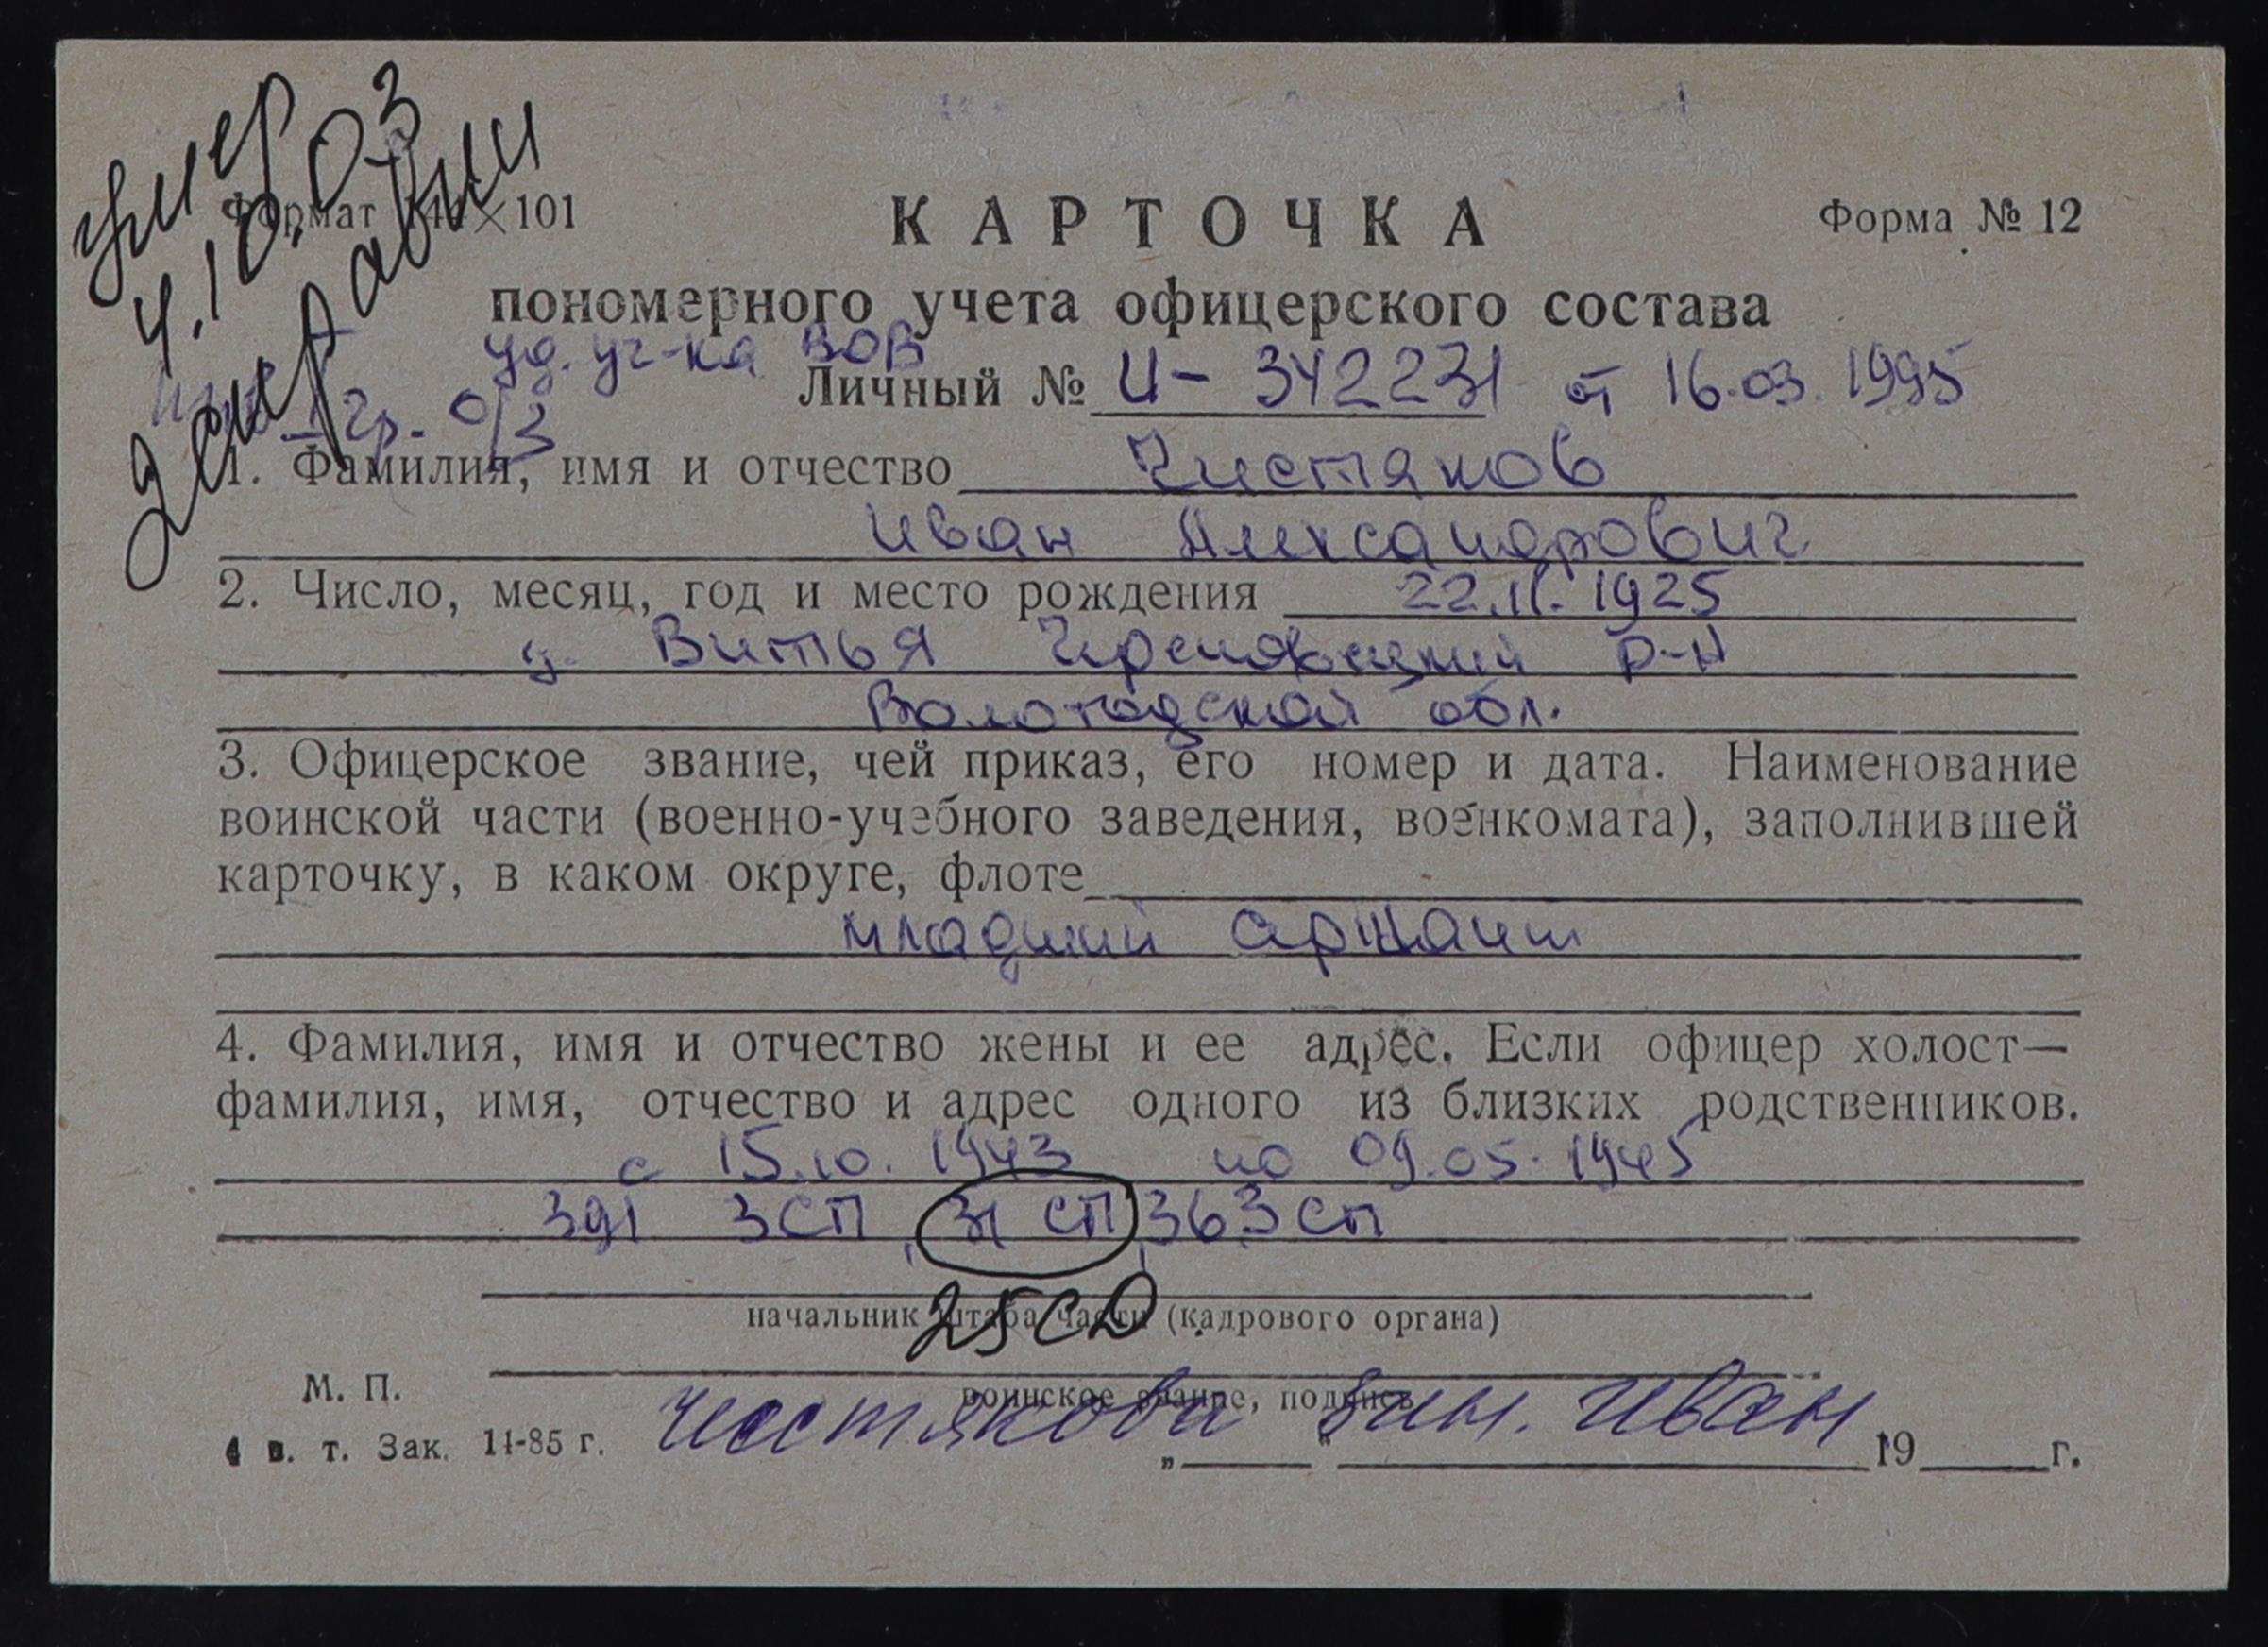 умер
4.10.03
Формат 14 × 101
К А Р Т О Ч К А
Форма № 12
пономерного учета офицерского состава
уд. уч-ка ВОВ
Личный № И - 342231 от 16.03.1995
гр. о/з
1. Фамилия, имя и отчество Чистяков
Иван Александрович
2. Число, месяц, год и место рождения 22.11.1925
д. Витья Череповецкий р-н
Вологодской обл.
3. Офицерское звание, чей приказ, его номер и дата. Наименование
воинской части (военно-учебного заведения, военкомата), заполнившей
карточку, в каком округе, флоте
младший сержант
4. Фамилия, имя и отчество жены и ее адрес. Если офицер холост—
фамилия, имя, отчество и адрес одного из близких родственников.
с 15.10.1943 по 09.05.1945
391 ЗСП, 31 СП, 363 СП
25СД
начальник штаба части (кадрового органа)
М. П.
воинское звание, подпись
4 в. т. Зак. 14-85 г.
Чистякова Зин. Иван
„ “ 19 г.